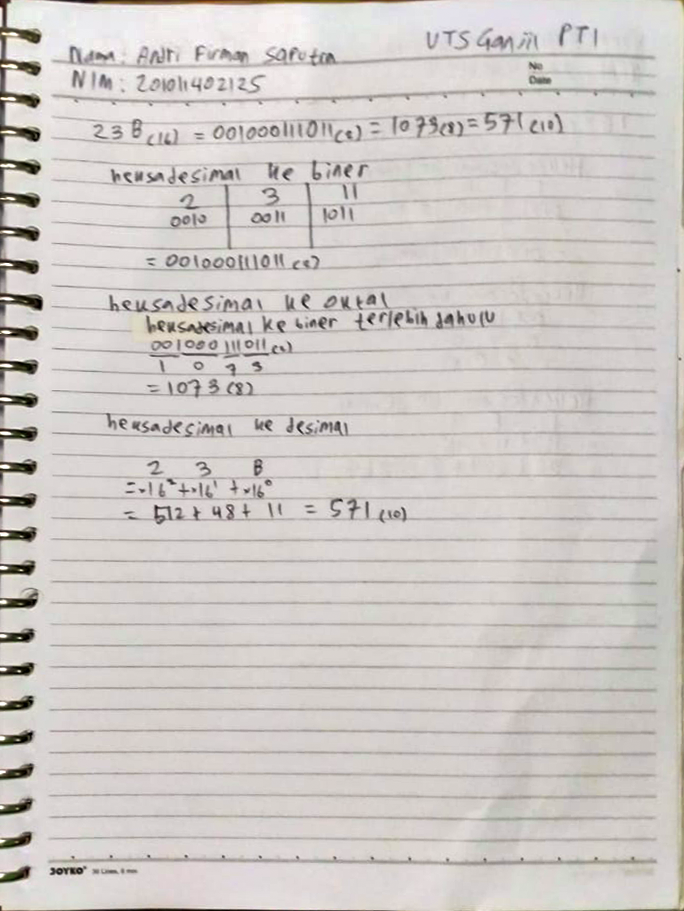 UTS Ganjil PTI
Nama : Andri Firman Saputra
NIM : 201011402125
No
Date
23B(16) = 001000111011(2) = 1073(8) = 571(10)
heksadesimal ke biner
2 3 11
0010 0011 1011
= 001000111011(2)
heksadesimal ke oktal
heksadesimal ke biner terlebih dahulu
001000111011(2)
1 0 7 3
= 1073(8)
heksadesimal ke desimal
2 3 B
=×16² +×16¹ +×16⁰
= 512 + 48 + 11 = 571(10)
JOYKO